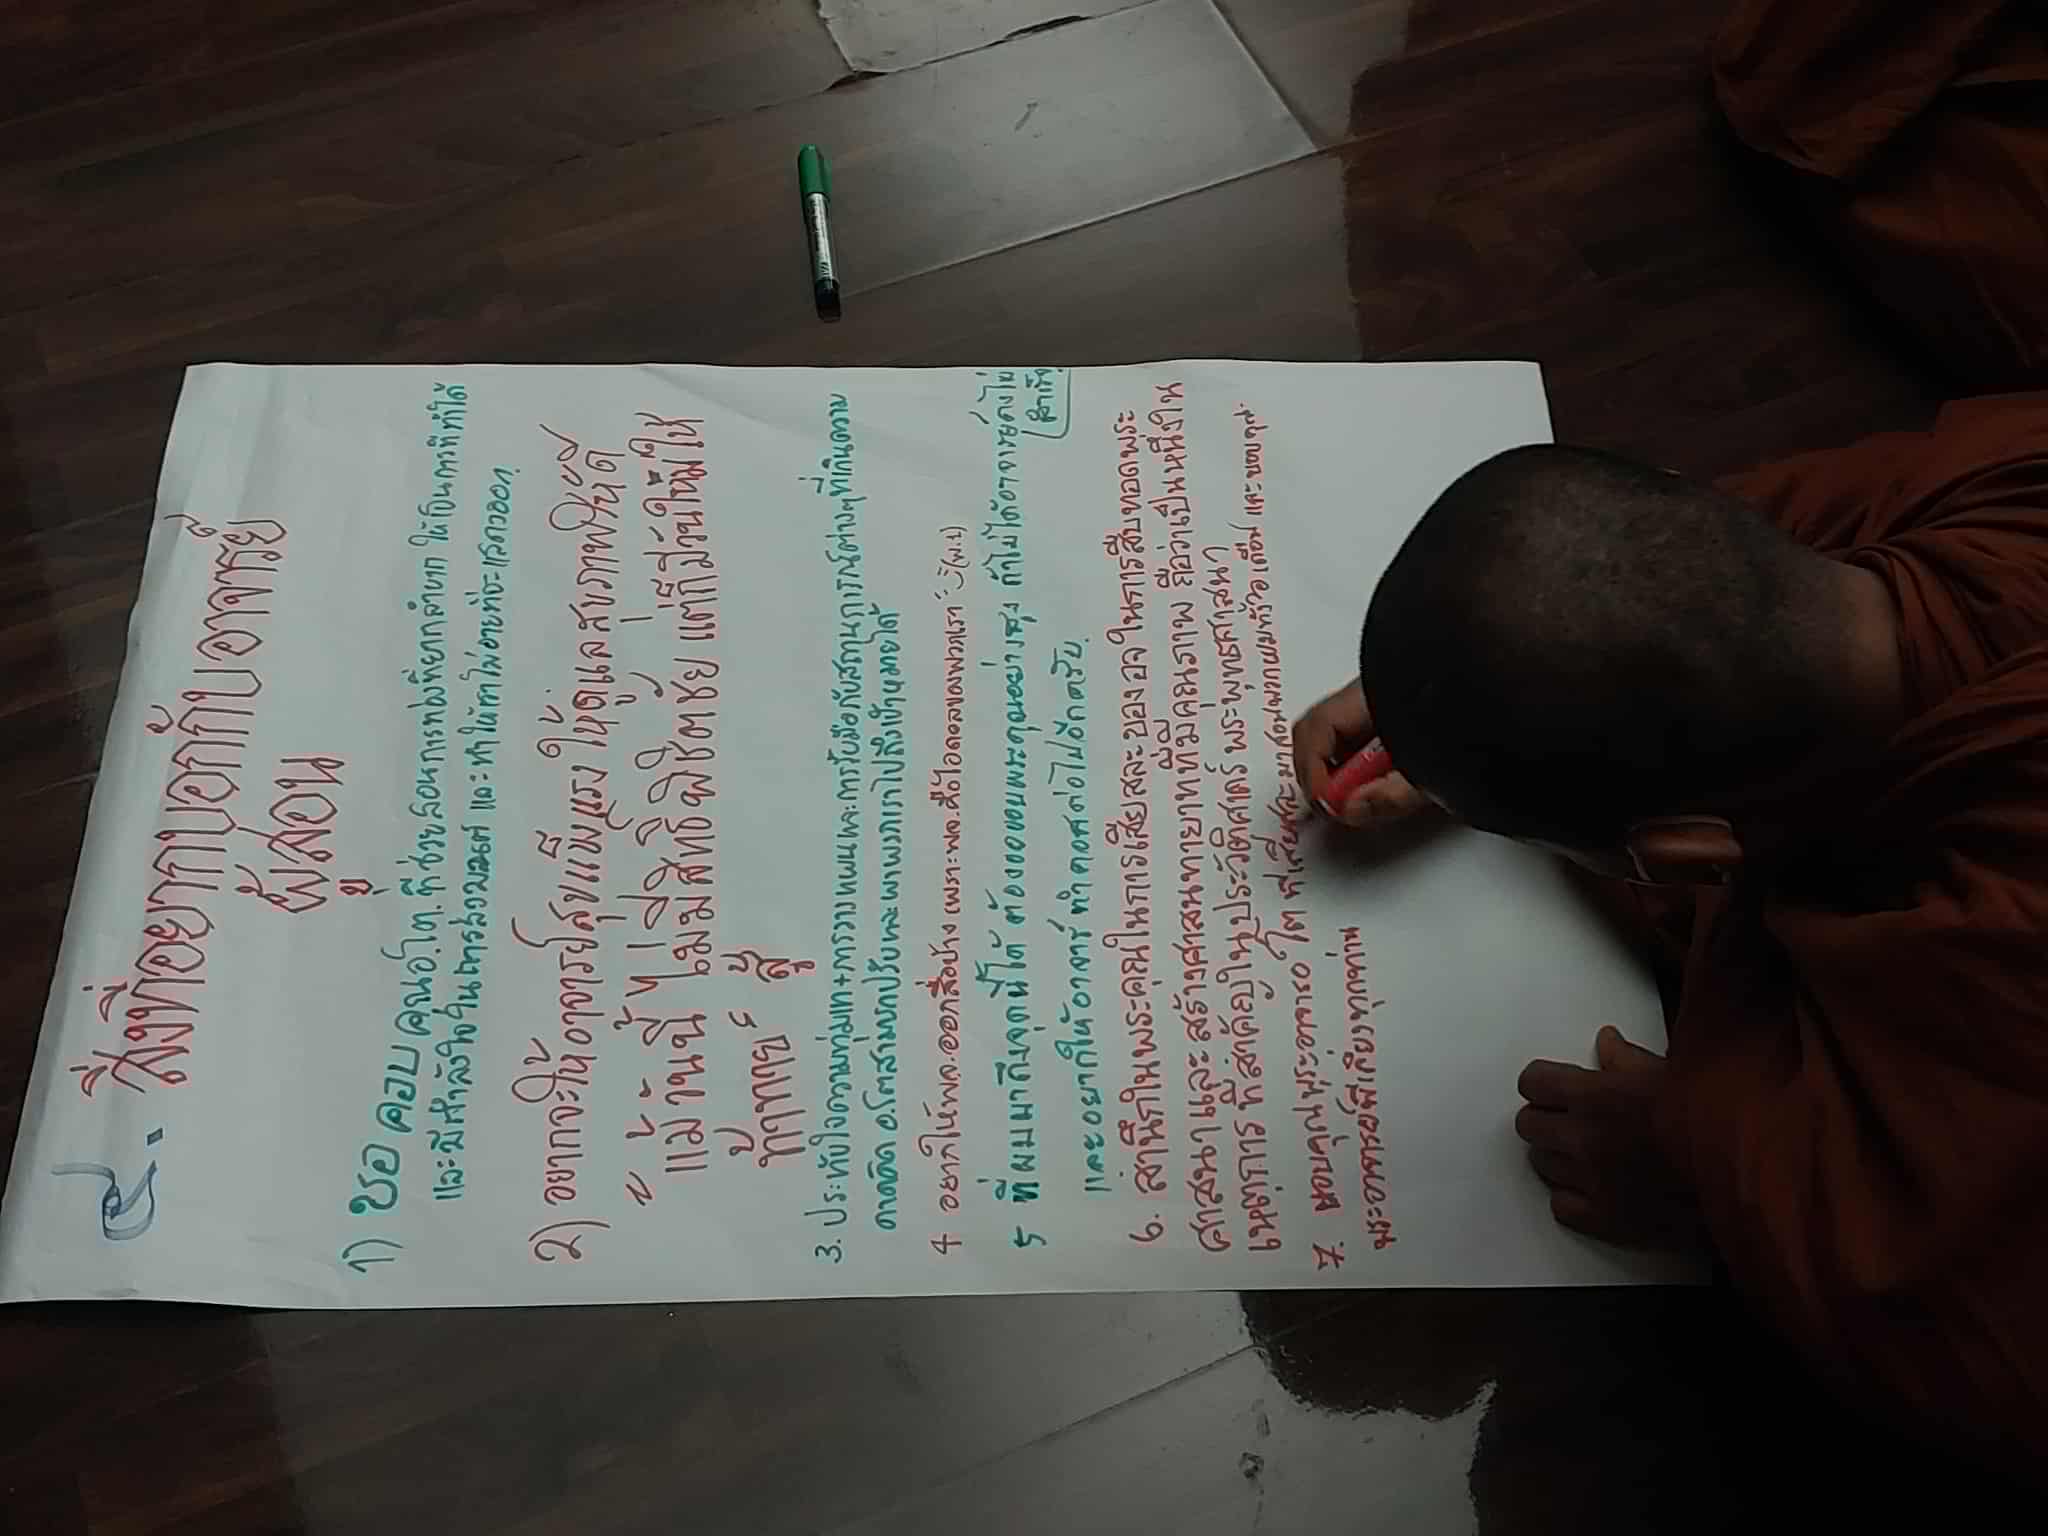 ๔. สิ่งที่อยากบอกกับอาจารย์
ผู้สอน
1) ขอ ขอบ คุณอ.โต. ที่ช่วยสอนการท่องที่ยากลำบาก ให้เป็นการที่ทำได้
และมีกำลังใจในการสวด และทำให้เราไม่อายที่จะแสดงออก
2) อยากจะให้อาจารย์สุขแข็งแรง ให้ดูแลสุขภาพให้ดี
แม้วันนี้ไม่มีสิทธิ์พิชิตชัย แต่ก็มีวันใหม่ให้
ท้าทาย สู้
3. ประทับใจความทุ่มเท+การวางแผนและการรับมือกับสถานการณ์ต่างๆที่เกินความ
คาดคิด อ.โตสามารถปรับและพาพวกเราไปถึงเป้าหมายได้
4 อยากให้พจ.ออกสื่อบ้าง เพราะพจ.คือไอดอลของพวกเรา
5 ที่ผมมาถึงจุดนี้ได้ ต้องขอบพระคุณอย่างสูง ถ้าไม่ได้อาจารย์คงไม่
สำเร็จ
และอยากให้อาจารย์ทำคอสต่อไปอีกครับ.
6. สำนึกในพระคุณในการเสียสละของอจ ในการสืบทอดพระ
ศาสนาและสร้างศาสนทายาทที่มีคุณภาพ ถือว่าเป็นหนึ่งใน
เหตุการ ที่สำคัญในประวัติศาสตร์ พระพุทธศาสนา
7. ขอบคุณพระอาจารย์ โต ที่เสียสละมาสอนพวกผมทั้ง เดือน และขอบคุณ
พระอาจารย์พี่เลี้ยงทุกท่าน